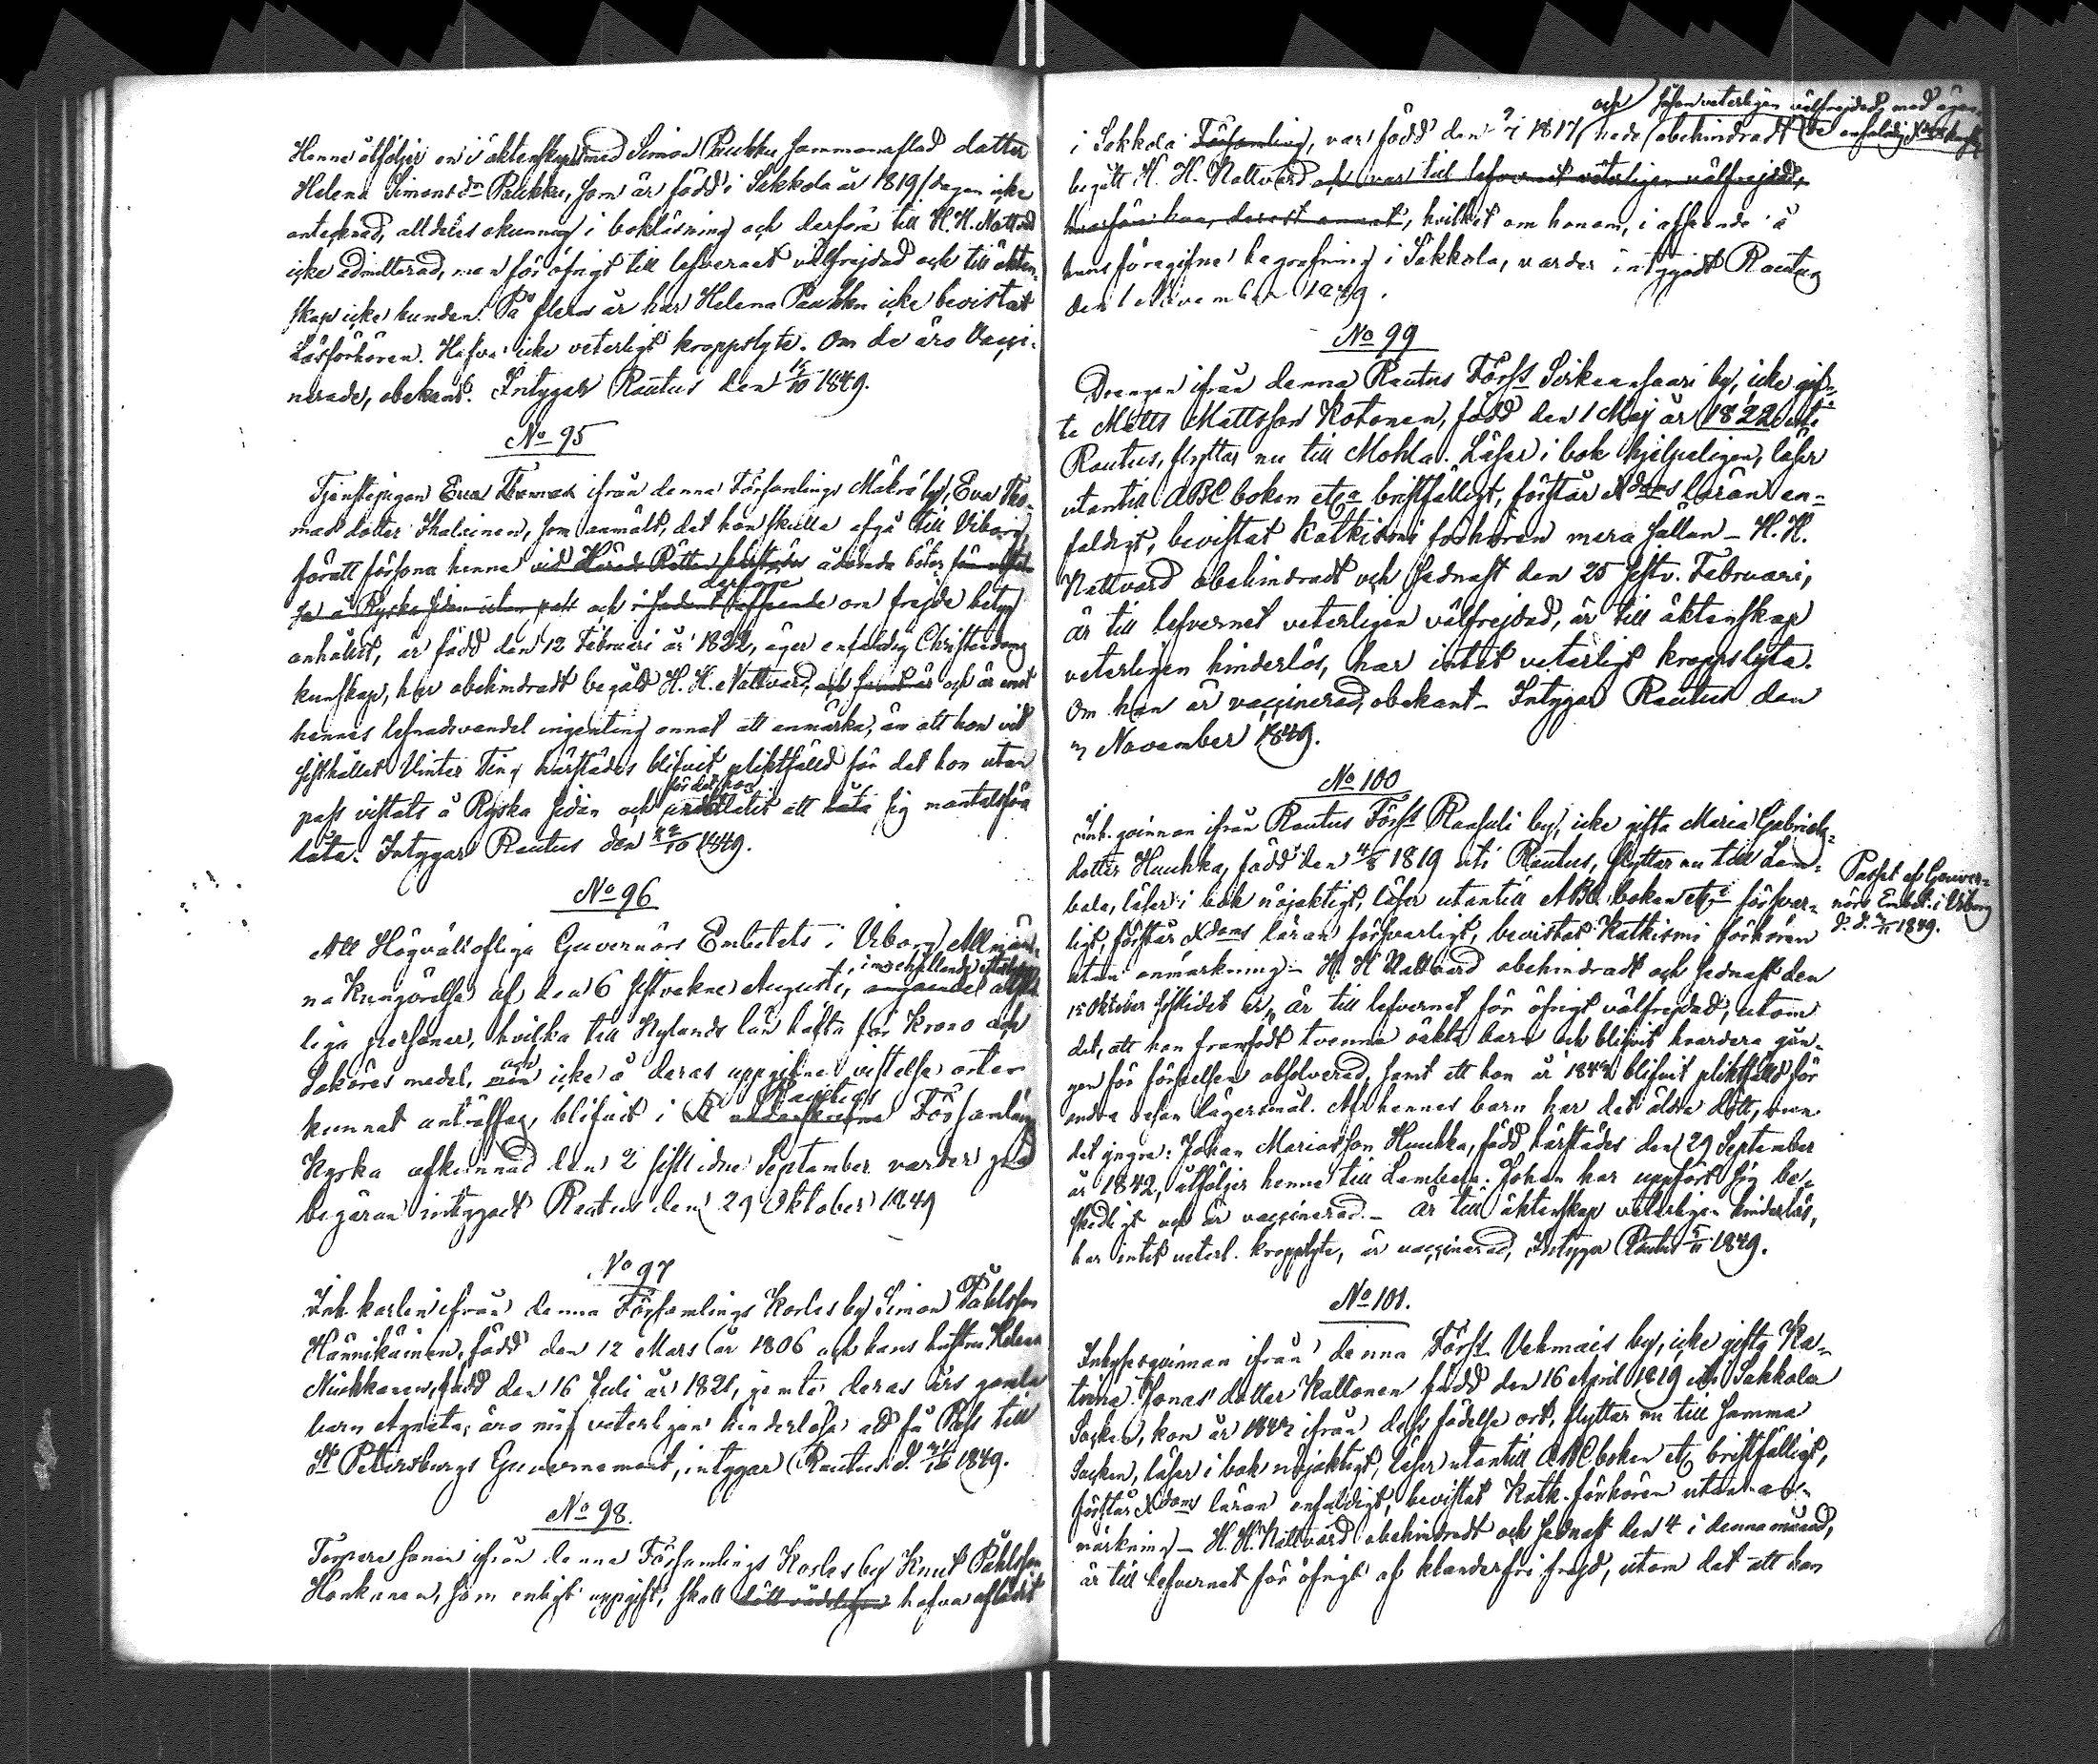 Henne åtföljer en i äktenskap med Simon Paukku sammanaflad dotter
Helena Simonsdr Paukku, som är född i Sakkola år 1819/dagen icke
antecknad, alldeles okunnig i bokläsning och derföre till H. H. Nattvard
icke admitterad, men för öfrigt till lefvernet välfrejdad och till äkten-
skap icke bunden. På flera år har Helena Paukku icke bevistat
Läsförhören. Hafva icke veterligt kroppslyte. Om de äro Vacci-
nerade, obekant. Intygar Rautus den 1849.
No 95
Tjenstepigan Eva Thomas ifrån denna Församlings Mäkrä by, Eva Tho-
mas dotter Ihalainen, som anmält, det hon skulle afgå till Viborg,
föratt försona henne vid Härads Rätten härstädes ådömda böter för
å Ryska sidan utan pass och i sådant afseende derföre om frejde betyg
anhållit, är född den 12 Februari år 1822, äger enfaldig Christendoms
kunskap, har obehindradt begått H. H. Nattvard, och är emot
hennes lefnadsvandel ingenting annat att anmärka, än att hon vid
sisthållet Vinter Ting härstädes blifvit pliktfälld för det hon utan
pass vistats å Ryska sidan och för det hon underlåtit att låta sig mantalsföra
låta. Intygar Rautus den 22/10 1849.
No 96
Att Högvälloflige Guvernörs Embetets i Viborg Allmän-
na Kungörelse af den 6 sistvekne Augusti, innehållande angående
liga personer, hvilka till Nylands län häfta för Krono och
Saköres medel, men och icke å deras uppgifne vistelse orter
kunnat anträffas, blifvit i Rautus Församlings
Kyrka afkunnad den 2 sistlidne September varder på
begäran intygadt Rautus den 29 Oktober 1849
No 97
Inh. karlen ifrån denna Församlings Korles by Simon Påhlsson
Hännikäinen, född den 12 Mars år 1806 och hans hustru Helena
Niukkanen, född den 16 Juli år 1821, jemte deras års gamla
barn Agneta, äro mig veterligen hinderlösa att få Pass till
St Petersburgs Guvernement, intygar Rautus d. 1849.
No 98.
Torpare sonen ifrån denna Församlings Korles by Knut Påhlsson
Honkanen, som enligt uppgift, skall hafva aflidit
och såsom veterligen välfrejdad, med ägan-
de enfaldig Xdoms kunskap
i Sakkola Församling, var född den 1817 hade obehindradt
begått H. H. Nattvard och var till lefvernet veterligen välfrejdad,
hvilket om honom, i afseende å
hans föregifne begrafning i Sakkola, varder intygadt Rautus
den 1 November 1849.
No 99
Drengen ifrån denna Rautus Förs:s Sirkeansaari by, icke gif-
te Matts Mattsson Kotonen, född den 1 Maj år 1822 uti
Rautus, flyttar nu till Mohla. Läser i bok hjelpeligen, läser
utantill ABC boken etc. bristfälligt, förstår Xdoms läran en-
faldigt, bevistat Katkismi förhören mera sällan – H. H.
Nattvard obehindradt och sednast den 25 sistv. Februari,
är till lefvernet veterligen välfrejdad, är till äktenskap
veterligen hinderlös, har intet veterligt kroppslyte.
Om han är vaccinerad, obekant – Intygar Rautus den
November 1849.
No 100
Inh. qvinnan ifrån Rautus Förs:s Raasuli by, icke gifta Maria Gabriels-
dotter Huuhka, född den 4/8 1819 uti Rautus, flyttar nu till Lem-
bala, läser i bok nöjaktigt, läser utantill ABC boken etc. försvar-
ligt, förstår Xdoms läran försvarligt, bevistat Katkismi förhören
utan anmärkning – H. H. Nattvard obehindradt och sednast den
15 Oktober sistlidet är till lefvernet för öfrigt välfrejdad, utom
det, att hon framfödt tvenne oäkta barn och blifvit hvardera gån-
gen för förseelsen absolverad, samt att hon år blifvit pliktfälld för
andra resan lägersmål. Af hennes barn har det äldre dött, men
det yngre: Johan Mariasson Huuhka, född härstädes den 29 September
år 1842, åtföljer henne till Lembala. Johan har uppfört sig be-
skedligt och är vaccinerad. – Är till äktenskap veterligen hinderlös,
har intet veterl. kroppslyte, är vaccinerad, Intygar Rautus 1849.
Passet af Gouver-
nörs Embet. i Viborg
d. d. 1849.
No 101.
Inhysesqvinnan ifrån denna Förs:s Vehmais by, icke gifta Ka-
trina Jonas dotter Kaltonen född den 16 April 1819 uti Sakkola
Socken, kom år ifrån dess födelse ort, flyttar nu till samma
Socken, läser i bok nöjaktigt, läser utantill ABC boken etc bristfälligt,
förstår Xdoms läran enfaldigt, bevistat Katk. förhören utan an-
märkning – H. H. Nattvard obehindradt och sednast den 4 i denna månad,
är till lefvernet för öfrigt af klanderfri frejd, utom det att hon